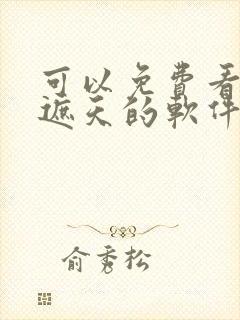 可以免費看
遮天的軟件
俞秀松